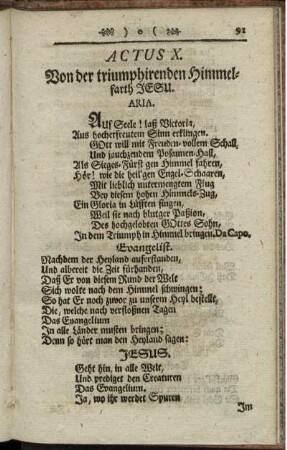 )o( 91
ACTUS X.
Von der triumphirenden Himmel-
farth JESU.
ARIA.
Auf Seele! laß Victoria,
Aus hocherfreutem Sinn erklingen.
GOtt will mit Freuden-vollem Schall,
Und jauchzendem Posaunen-Hall,
Als Sieges-Fürst gen Himmel fahren,
Hör! wie die heil'gen Engel-Schaaren,
Mit lieblich untermengtem Flug
Bey diesem hohen Himmels-Zug,
Ein Gloria in Lüfften singen,
Weil sie nach blutger Paßion,
Des hochgelobten GOttes Sohn,
In dem Triumph in Himmel bringen. Da Capo.
Evangelist.
Nachdem der Heyland auferstanden,
Und albereit die Zeit fürhanden,
Daß Er von diesem Rund der Welt
Sich wolte nach dem Himmel schwingen;
So hat Er noch zuvor zu unserm Heyl bestellt,
Die, welche nach verfloßnen Tagen
Das Evangelium
In alle Länder musten bringen;
Denn so hört man den Heyland sagen:
JESUS.
Geht hin, in alle Welt,
Und prediget den Creaturen
Das Evangelium,
Ja, wo ihr werdet Spuren
Im